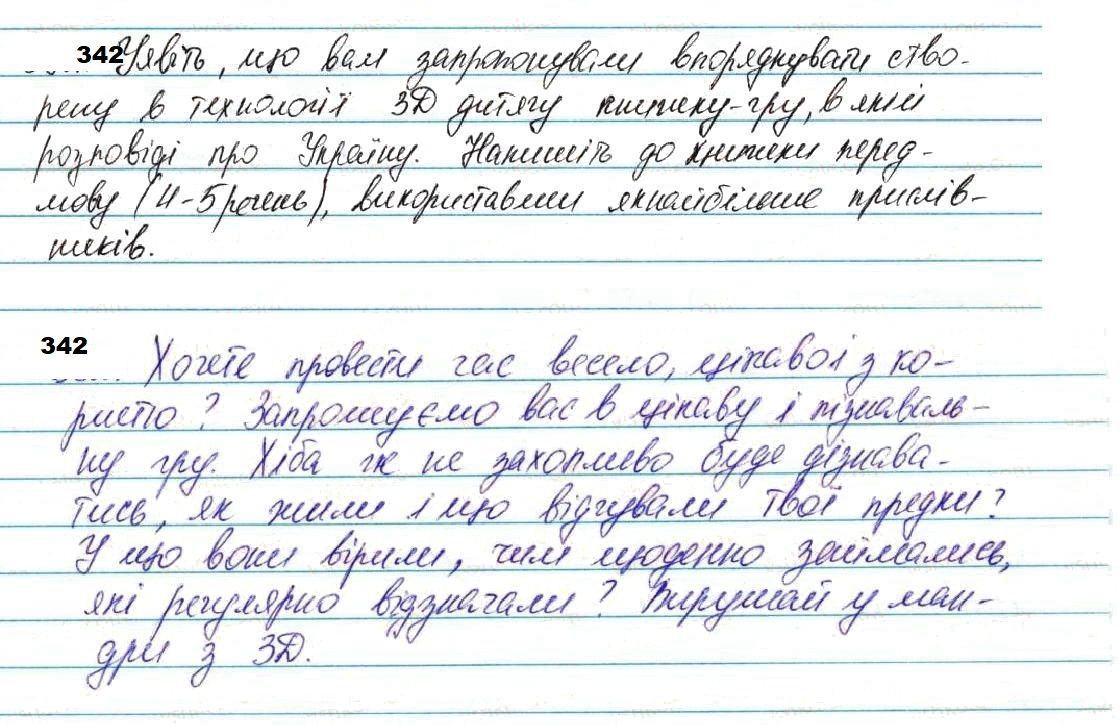 342 Уявіть, що вам запропонували впорядкувати ство-
рену в технології 3D дитячу книжку-гру, в якій
розповіді про Україну. Напишіть до книжки перед-
мову (4-5 речень), використавши якнайбільше прислів-
ників.
342 Хочете провести час весело, цікаво і з ко-
ристю? Запрошуємо вас в цікаву і пізнаваль-
ну гру. Хіба ж не захопливо буде дізнава-
тись, як жили і що відчували твої предки?
У що вони вірили, чим щоденно займались,
які регулярно відзначали? Вирушай у ман-
дри з 3D.